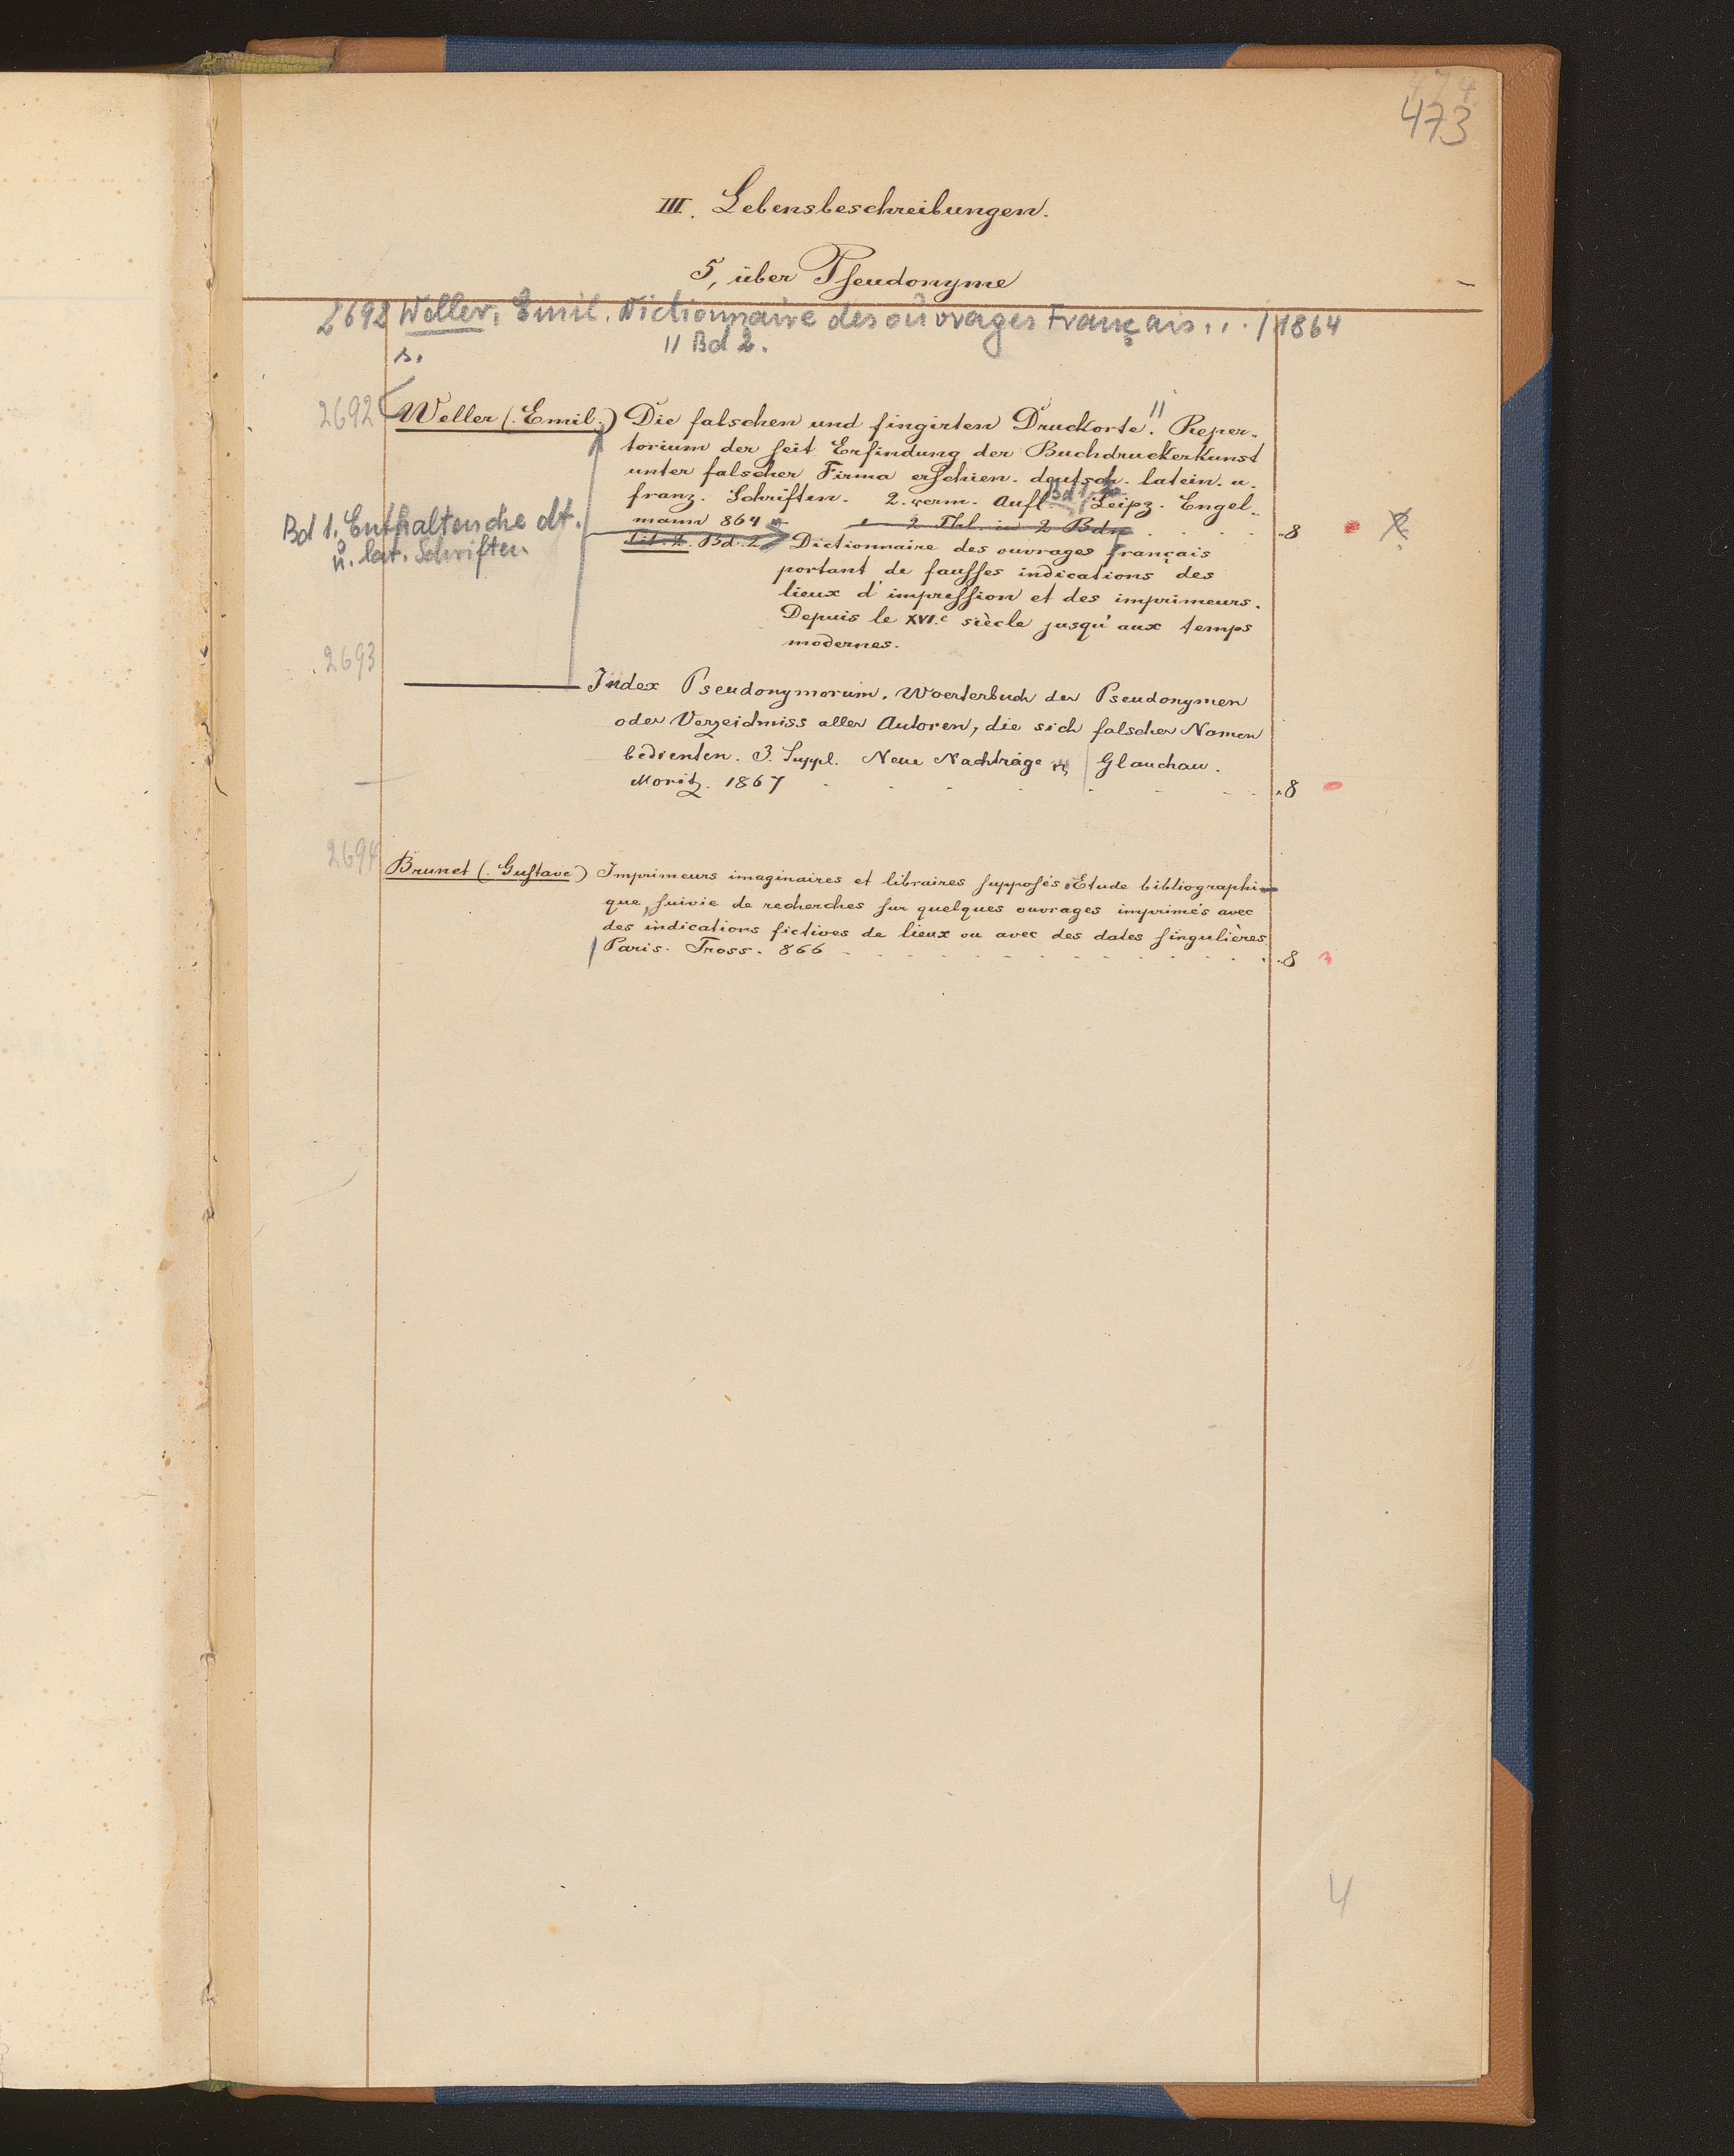 474
473
III. Lebensbeschreibungen.
5, über Pseudonyme
2692 Weller, Emil. Dictionnaire des ouvrages Français... / 1864
s. || Bd 2.
2692 Weller (Emil.) Die falschen und fingirten Druckorte. || Reper-
torium der seit Erfindung der Buchdruckerkunst
unter falscher Firma erschien. deutsch. latein. u.
franz. Schriften. 2. verm. Aufl. Bd 1, Leipz. Engel-
mann 864 2 Thl. in 2 Bdn . . . . 8
Bd 1. Enthaltend die dt.
u. lat. Schriften
Tit. z. Bd. 2 Dictionnaire des ouvrages français
portant de fausses indications des
lieux d'impression et des imprimeurs.
Depuis le XVI.e siècle jusqu'aux temps
modernes.
2693
——— Index Pseudonymorum. Woerterbuch der Pseudonymen
oder Verzeichniss aller Autoren, die sich falscher Namen
bedienten. 3. Suppl. Neue Nachträge | Glauchau.
Moritz. 1867 . . . . . . . . 8
2694 Brunet (Gustave) Imprimeurs imaginaires et libraires supposés. Etude bibliographi-
que, suivie de recherches sur quelques ouvrages imprimés avec
des indications fictives de lieux ou avec des dates singulières
| Paris. Tross. 866 . . . . . . . . . . . . . 8
4